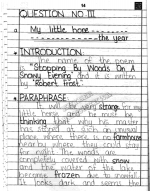 14
QUESTION NO III
a My little horse
the year
INTRODUCTION:
The name of the poem
is "Stopping By Woods On A
Snowy Evening" and it is written
by "Robert Frost".
PARAPHRASE:
It will be very strange for my
little horse and he must be
thinking that why his master
has stopped at such an unusual
place, where there is no farmhouse
near by where they could stay
the woods are
completely covered with snow
and the water of the lake
become frozen due to
It looks dark and seems the